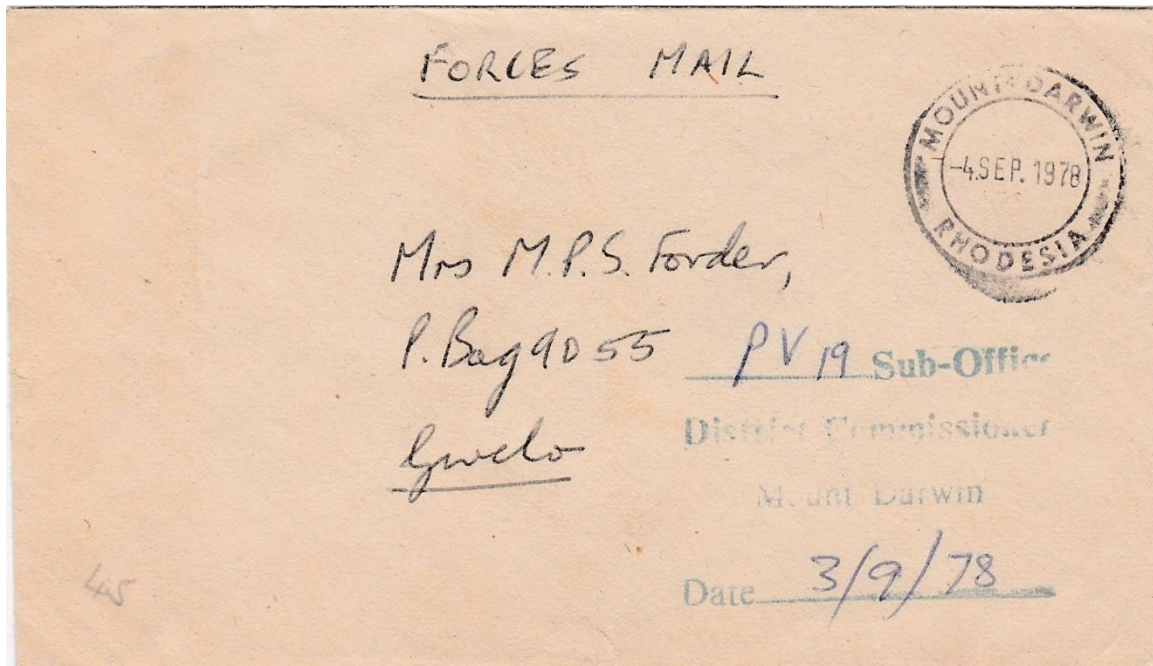 FORCES MAIL
MOUNT DARWIN
-4.SEP.1978
RHODESIA
Mrs M.P.S. Forder,
P. Bag 9055
Gwelo
PV 19 Sub-Office
District Commissioner
Mount Darwin
Date 3/9/78
45